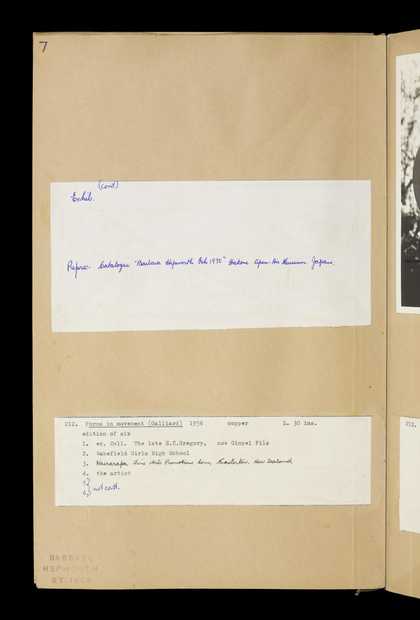 7
(cont)
Exhib.
Repro- Catalogue "Barbara Hepworth Feb 1970" Hakone Open-Air Museum Japan.
212. Forms in movement (Galliard) 1956 copper L. 30 ins.
edition of six
1. ex. Coll. The late E.C.Gregory, now Gimpel Fils
2. Wakefield Girls High School
3. Wairarapa Fine Arts Promotions Masterton. New Zealand
4. the artist
5}
6} not cast.
BARBARA
HEPWORTH
ST. IVES
212.